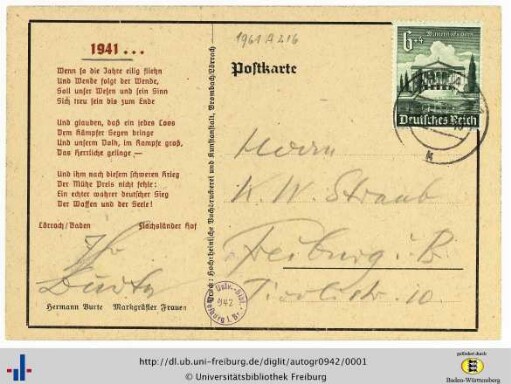 1941 . . .
Wenn so die Jahre eilig fliehn
Und Wende folgt der Wende,
Soll unser Wesen und sein Sinn
Sich treu sein bis zum Ende
Und glauben, daß ein jedes Loos
Dem Kämpfer Segen bringe
Und unserm Volk, im Kampfe groß,
Das Herrliche gelinge —
Und ihm nach diesem schweren Krieg
Der Mühe Preis nicht fehle:
Ein echter wahrer deutscher Sieg
Der Waffen und der Seele!
Lörrach/Baden Flachsländer Hof
Ihr
Burte
Hermann Burte Markgräfler Frauen
Hochrheinische Buchdruckerei und Kunstanstalt, Brombach/Lörrach
1961 A 216
Postkarte
6+4
Deutsches Reich
k
Herrn
K. W. Straub
Freiburg i. B.
Tivolistr. 10
942
http://dl.ub.uni-freiburg.de/diglit/autogr0942/0001
© Universitätsbibliothek Freiburg
gefördert durch
Baden-Württemberg